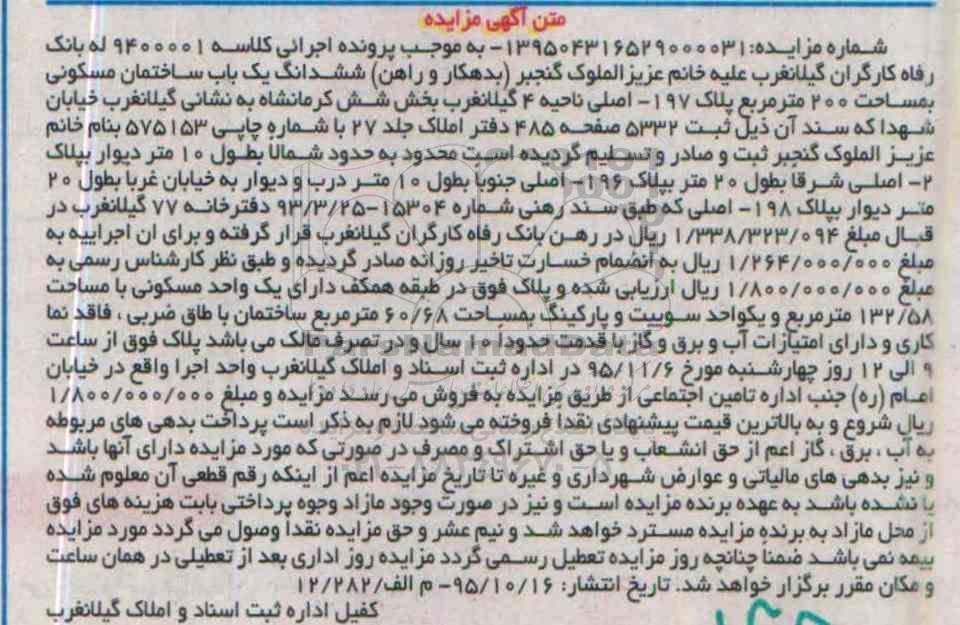 متن آگهی مزایده
شماره مزایده: ۱۳۹۵۰۴۳۱۶۵۲۹۰۰۰۰۳۱- به موجب پرونده اجرائی کلاسه ۹۴۰۰۰۰۱ له بانک
رفاه کارگران گیلانغرب علیه خانم عزیزالملوک گنجبر (بدهکار و راهن) ششدانگ یک باب ساختمان مسکونی
بمساحت ۲۰۰ مترمربع پلاک ۱۹۷- اصلی ناحیه ۴ گیلانغرب بخش شش کرمانشاه به نشانی گیلانغرب خیابان
شهدا که سند آن ذیل ثبت ۵۳۳۲ صفحه ۴۸۵ دفتر املاک جلد ۲۷ با شماره چاپی ۵۷۵۱۵۳ بنام خانم
عزیز الملوک گنجبر ثبت و صادر و تسلیم گردیده است محدود به حدود شمالا بطول ۱۰ متر دیوار بپلاک
۲- اصلی شرقا بطول ۲۰ متر بپلاک ۱۹۶- اصلی جنوبا بطول ۱۰ متر درب و دیوار به خیابان غربا بطول ۲۰
متر دیوار بپلاک ۱۹۸- اصلی که طبق سند رهنی شماره ۱۵۳۰۴-۹۳/۳/۲۵ دفترخانه ۷۷ گیلانغرب در
قبال مبلغ ۱/۳۳۸/۳۲۳/۰۹۴ ریال در رهن بانک رفاه کارگران گیلانغرب قرار گرفته و برای ان اجراییه به
مبلغ ۱/۲۶۴/۰۰۰/۰۰۰ ریال به انضمام خسارت تاخیر روزانه صادر گردیده و طبق نظر کارشناس رسمی به
مبلغ ۱/۸۰۰/۰۰۰/۰۰۰ ریال ارزیابی شده و پلاک فوق در طبقه همکف دارای یک واحد مسکونی با مساحت
۱۳۲/۵۸ مترمربع و یکواحد سوییت و پارکینگ بمساحت ۶۰/۶۸ مترمربع ساختمان با طاق ضربی ، فاقد نما
کاری و دارای امتیازات آب و برق و گاز با قدمت حدودا ۱۰ سال و در تصرف مالک می باشد پلاک فوق از ساعت
۹ الی ۱۲ روز چهارشنبه مورخ ۹۵/۱۱/۶ در اداره ثبت اسناد و املاک گیلانغرب واحد اجرا واقع در خیابان
امام (ره) جنب اداره تامین اجتماعی از طریق مزایده به فروش می رسد مزایده و مبلغ ۱/۸۰۰/۰۰۰/۰۰۰
ریال شروع و به بالاترین قیمت پیشنهادی نقدا فروخته می شود لازم به ذکر است پرداخت بدهی های مربوطه
به آب ، برق ، گاز اعم از حق انشعاب و یا حق اشتراک و مصرف در صورتی که مورد مزایده دارای آنها باشد
و نیز بدهی های مالیاتی و عوارض شهرداری و غیره تا تاریخ مزایده اعم از اینکه رقم قطعی آن معلوم شده
یا نشده باشد به عهده برنده مزایده است و نیز در صورت وجود مازاد وجوه پرداختی بابت هزینه های فوق
از محل مازاد به برنده مزایده مسترد خواهد شد و نیم عشر و حق مزایده نقدا وصول می گردد مورد مزایده
بیمه نمی باشد ضمنا چنانچه روز مزایده تعطیل رسمی گردد مزایده روز اداری بعد از تعطیلی در همان ساعت
و مکان مقرر برگزار خواهد شد. تاریخ انتشار: ۹۵/۱۰/۱۶- م الف/۱۲/۲۸۲
کفیل اداره ثبت اسناد و املاک گیلانغرب